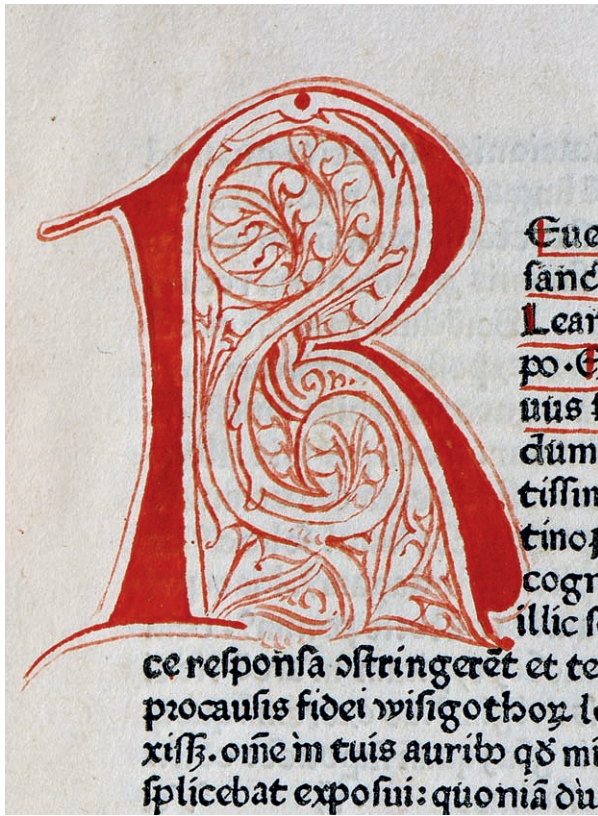 R
Eue
ſanc
Lean
po·G
uus ſ
dum
tiſſim
tinop
cogn
illic ſe
ce reſponſa ɔſtringerēt et te
procauſis fidei wiſigothoꝝ le
xiſſꝫ. om̄e in tuis auribꝰ qđ mi
ſplicebat expoſui: quoniā diu